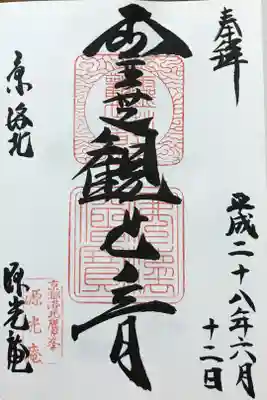 奉拝
平成二十八年六月
十二日
霊芝観世音
京 洛北
源光庵
京都洛北鷹峯
源光庵